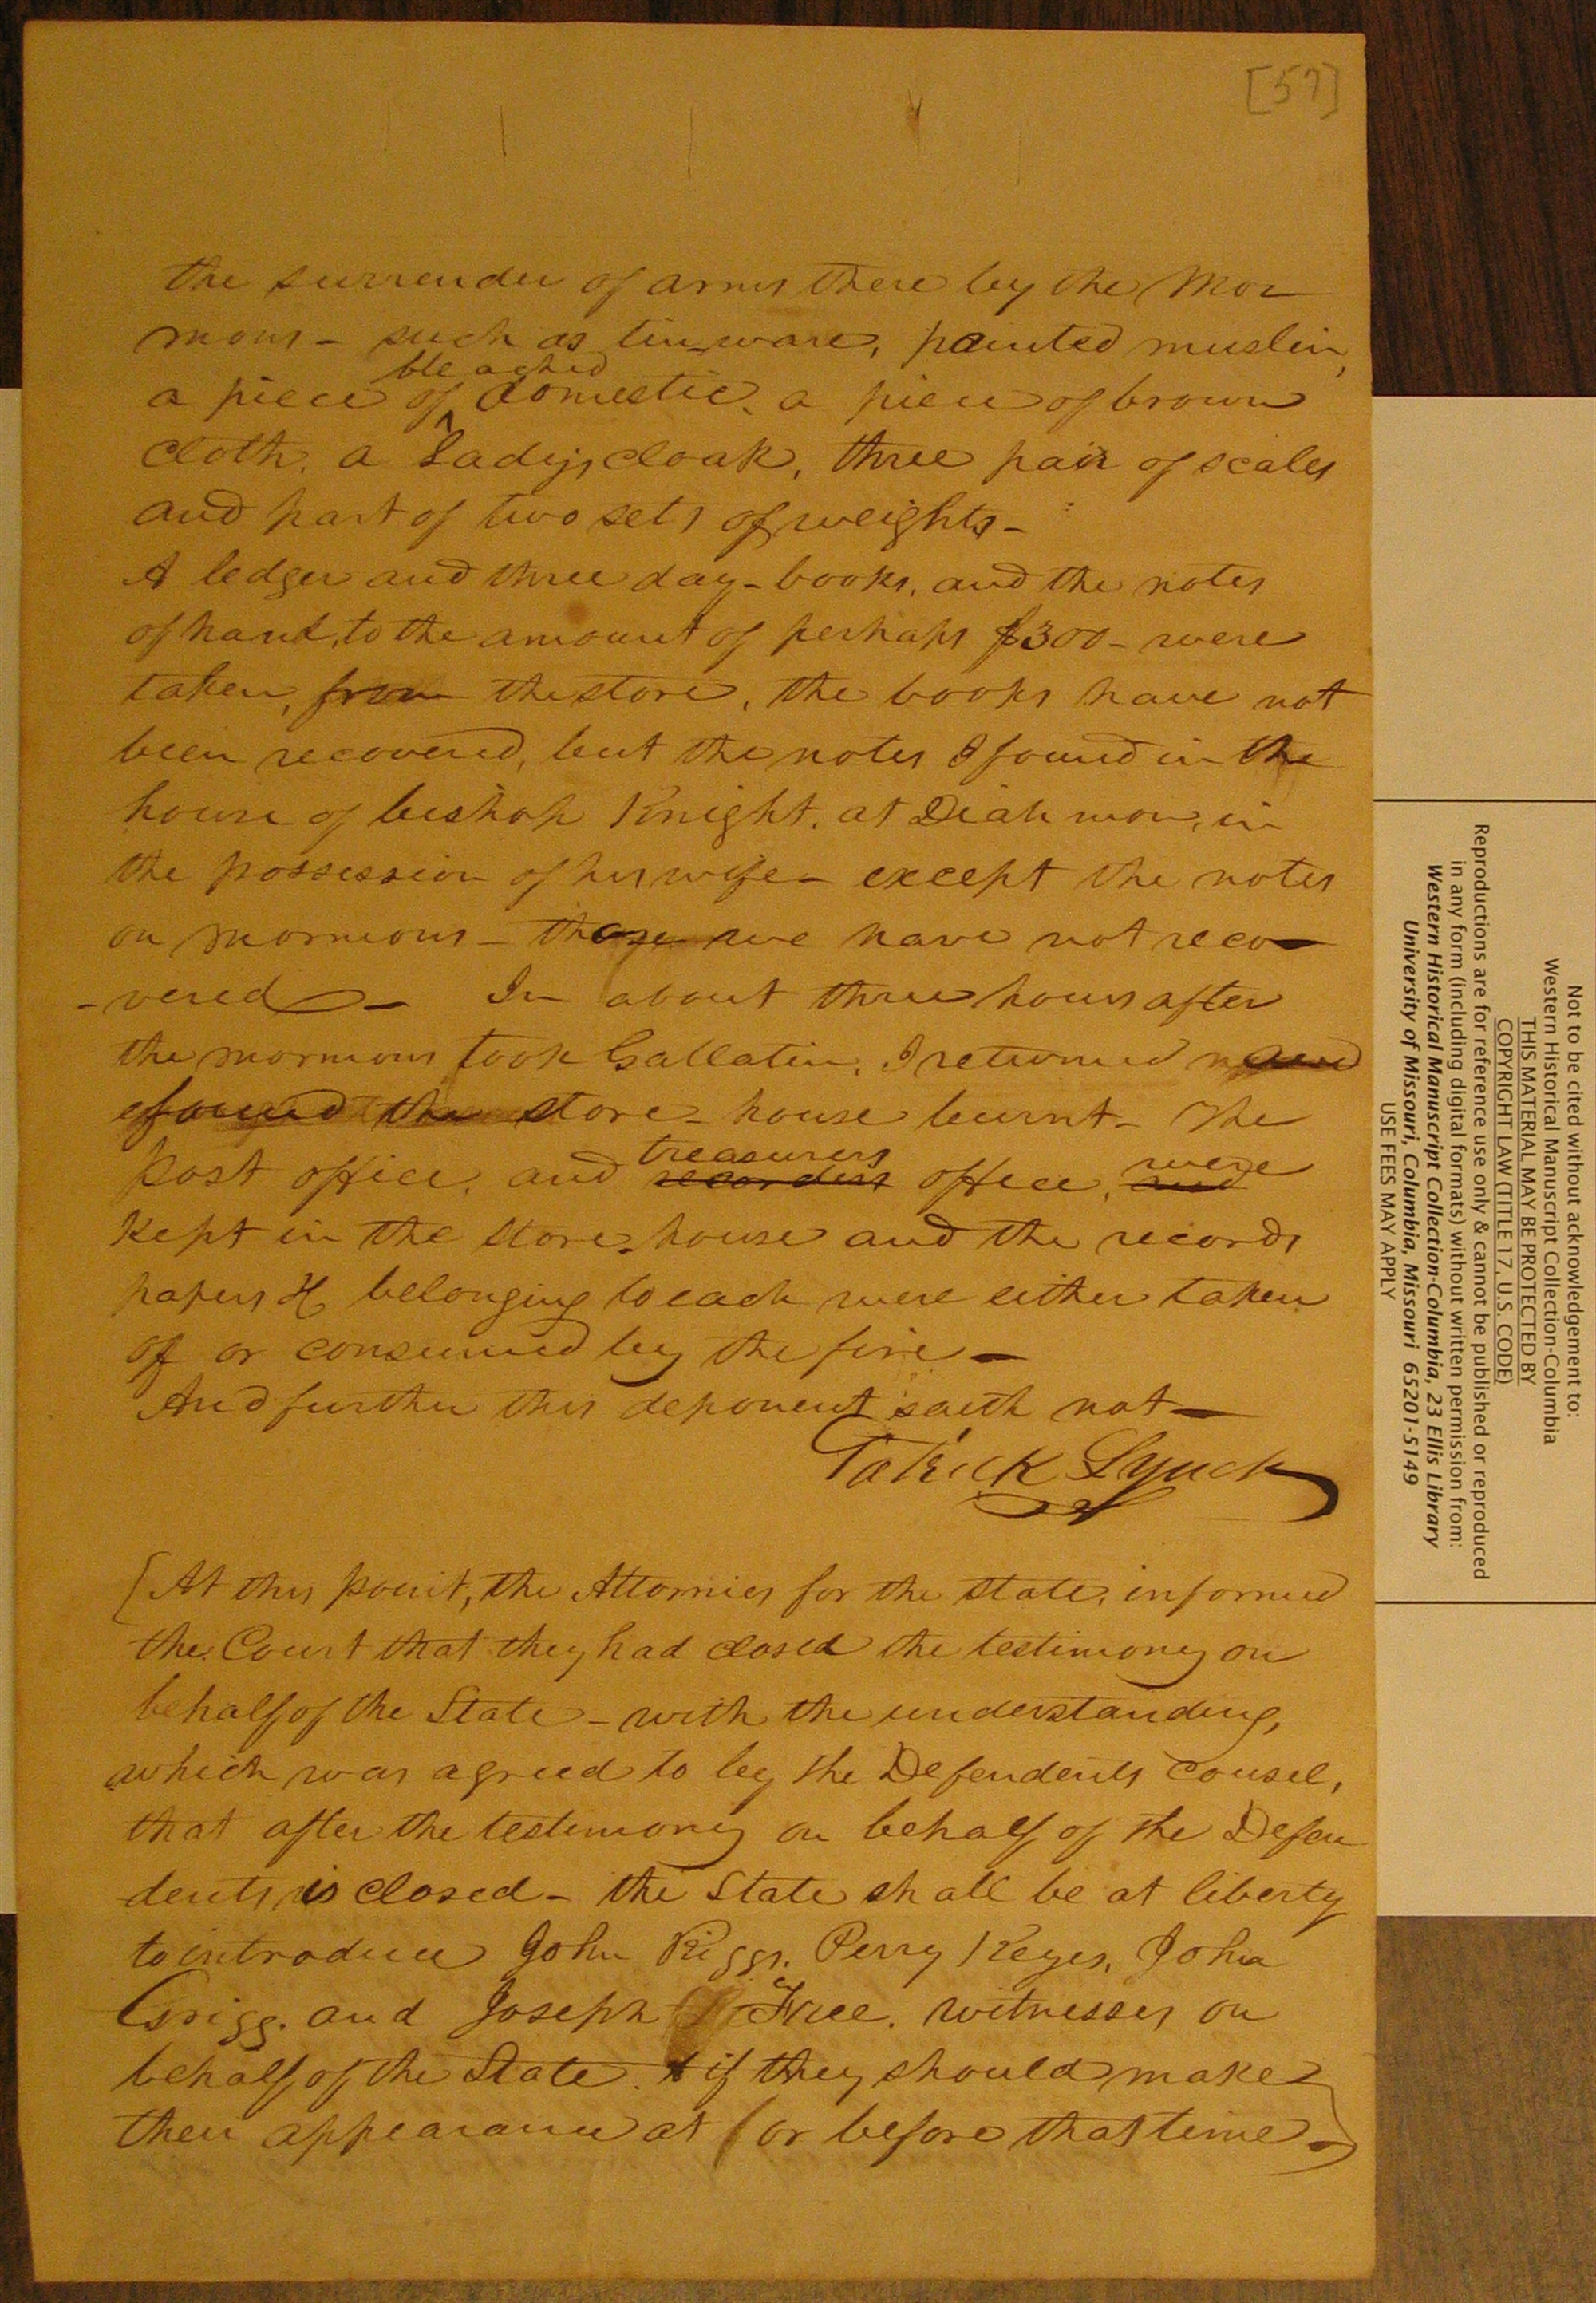 [57]
the surrender of arms there by the Mor
mons - such as tin ware, painted muslin,
bleached
a piece of ^ domestic, a piece of brown
cloth, a Ladys cloak, three pair of scales
and part of two sets of weights -
A ledger and three day-books, and the notes
of hand, to the amount of perhaps $300 - were
taken, from the store, the books have not
been recovered, but the notes I found in the
house of bishop Knight, at Diahmon, in
the possession of his wife - except the notes
on mormons - those we have not reco-
-vered - In about three hours after
the mormons took Gallatin, I returned
& found the store-house burnt - The
treasurers were
Post office, and recorders office, and
kept in the store-house and the records
papers &c belonging to each were either taken
off or consumed by the fire -
And further this deponent saith not -
Patrick Lynch
[At this point, the Attornies for the state, informed
the Court that they had closed the testimony on
behalf of the State - with the understanding,
which was agreed to by the Defendents cousel,
that after the testimony on behalf of the Defen
dents is closed - the State shall be at liberty
to introduce John Riggs, Perry Keyes, John
Grigg, and Joseph Free, witnesses on
behalf of the State, if they should make
their appearance at or before that time -]
Not to be cited without acknowledgement to:
Western Historical Manuscript Collection-Columbia
THIS MATERIAL MAY BE PROTECTED BY
COPYRIGHT LAW (TITLE 17, U.S. CODE)
Reproductions are for reference use only & cannot be published or reproduced
in any form (including digital formats) without written permission from:
Western Historical Manuscript Collection-Columbia, 23 Ellis Library
University of Missouri, Columbia, Missouri 65201-5149
USE FEES MAY APPLY